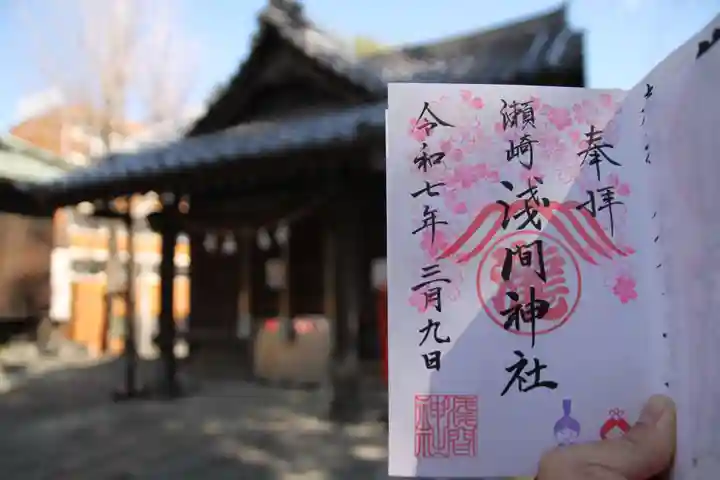 奉拝
瀬崎
浅間神社
令和七年 三月九日
浅間
神社